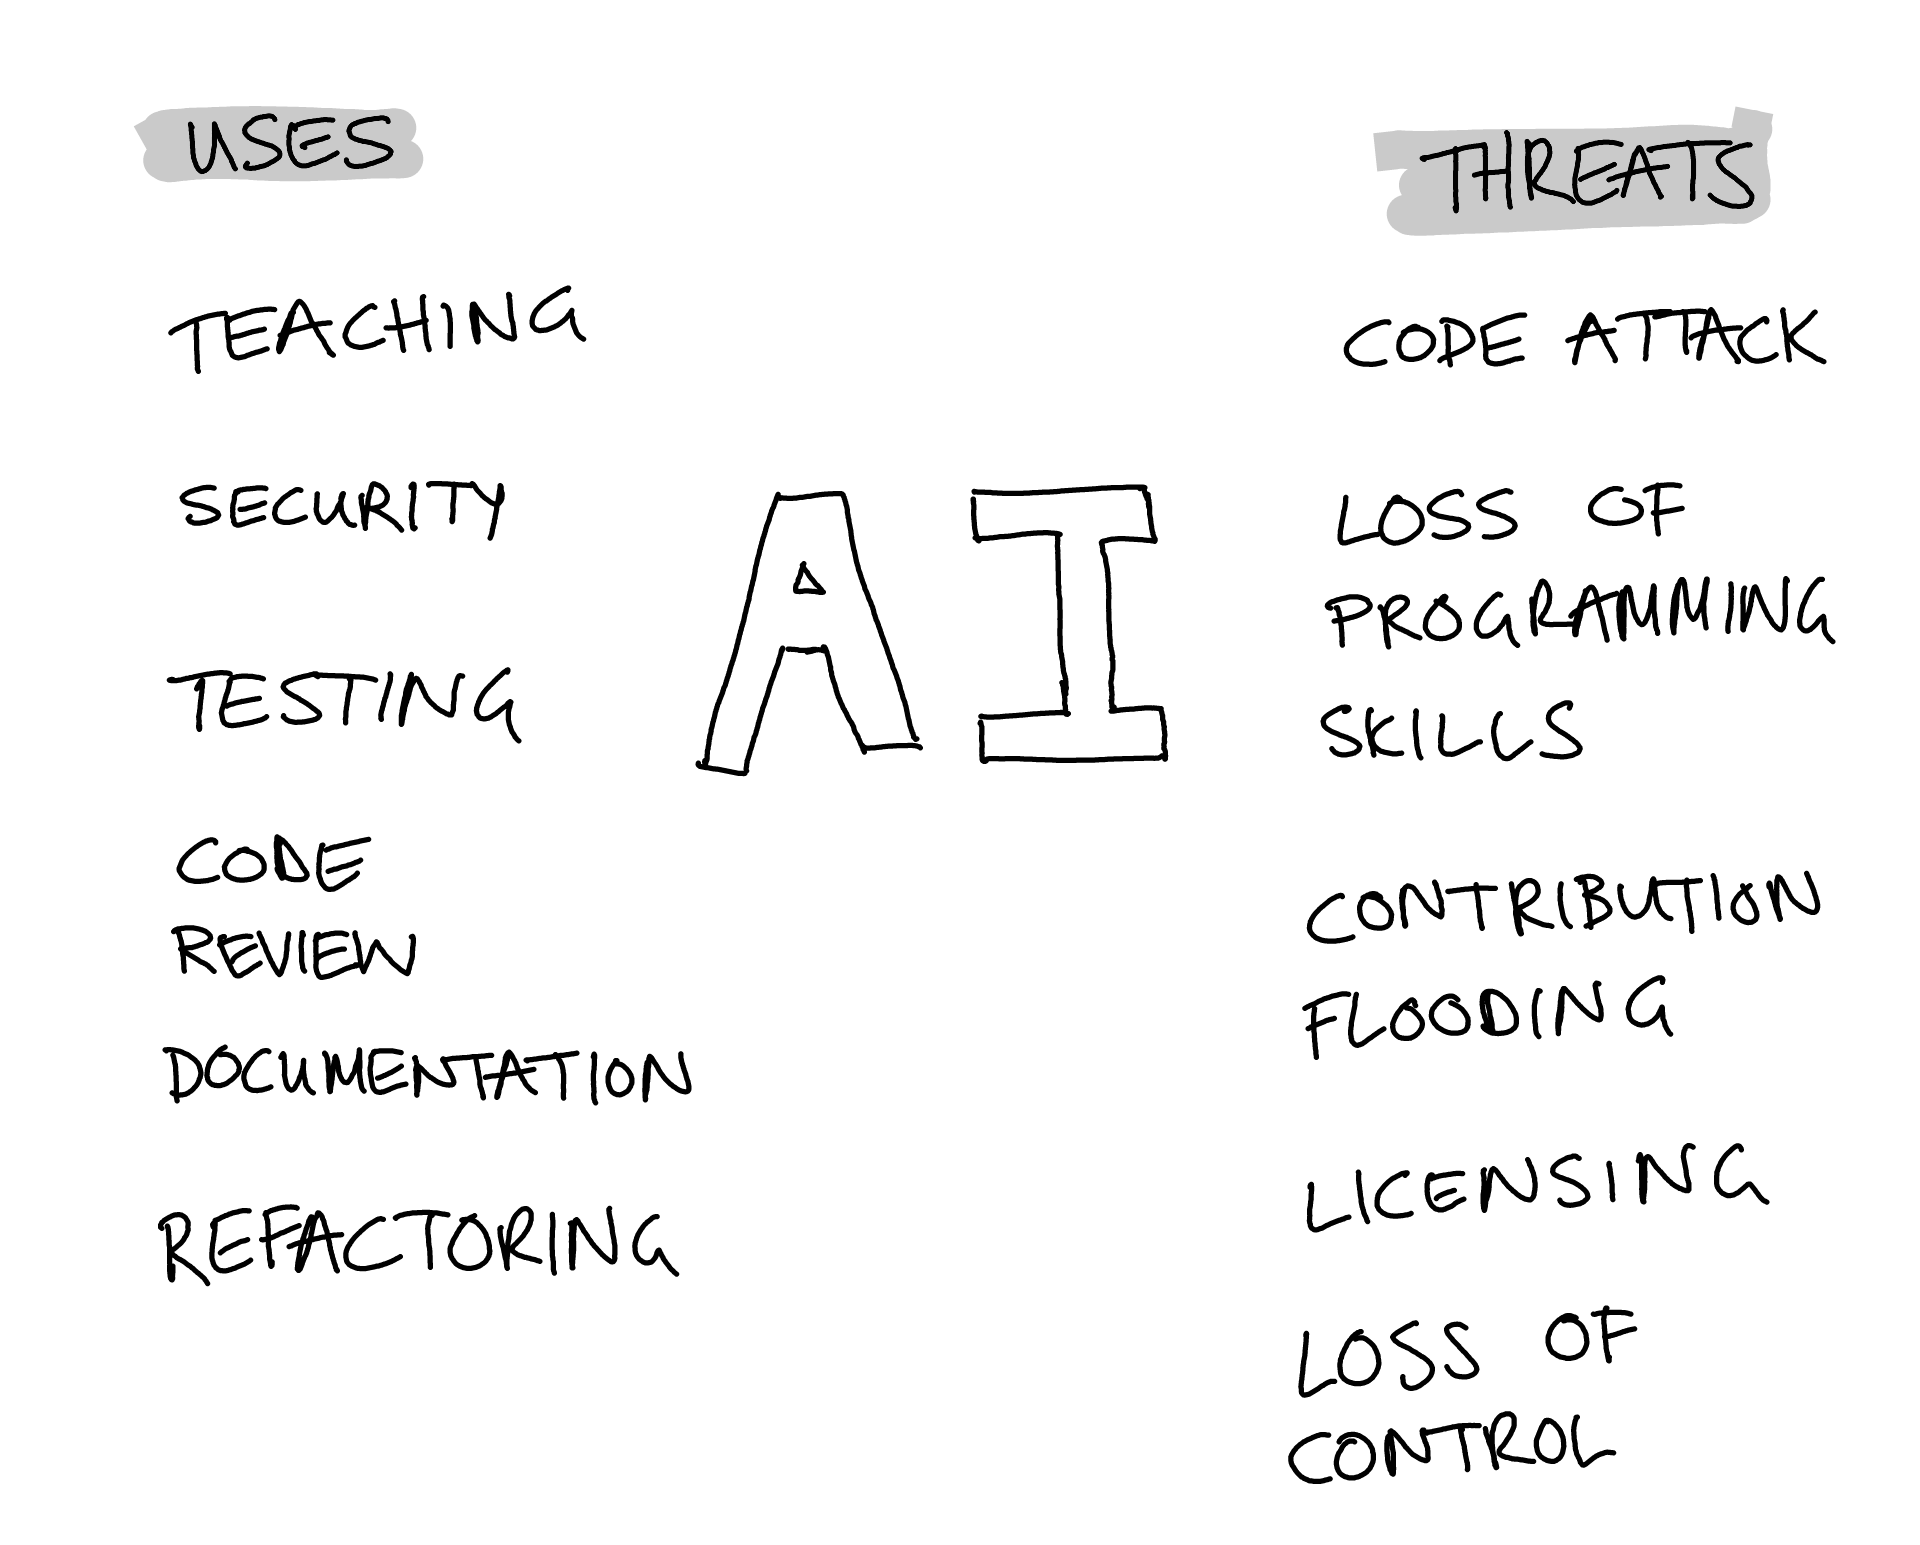 USES
TEACHING
SECURITY
TESTING
CODE
REVIEW
DOCUMENTATION
REFACTORING
AI
THREATS
CODE ATTACK
LOSS OF
PROGRAMMING
SKILLS
CONTRIBUTION
FLOODING
LICENSING
LOSS OF
CONTROL